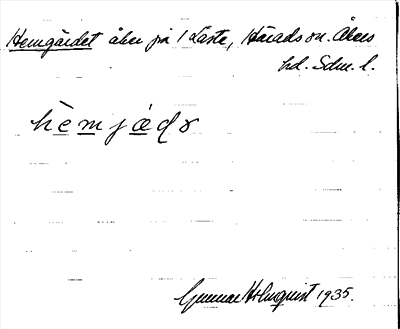 Hemgärdet åker på 1 Laste, Härads sn. Åkers
hd. Sdm. l.
hèmjædɤ
Gunnar Holmquist 1935.